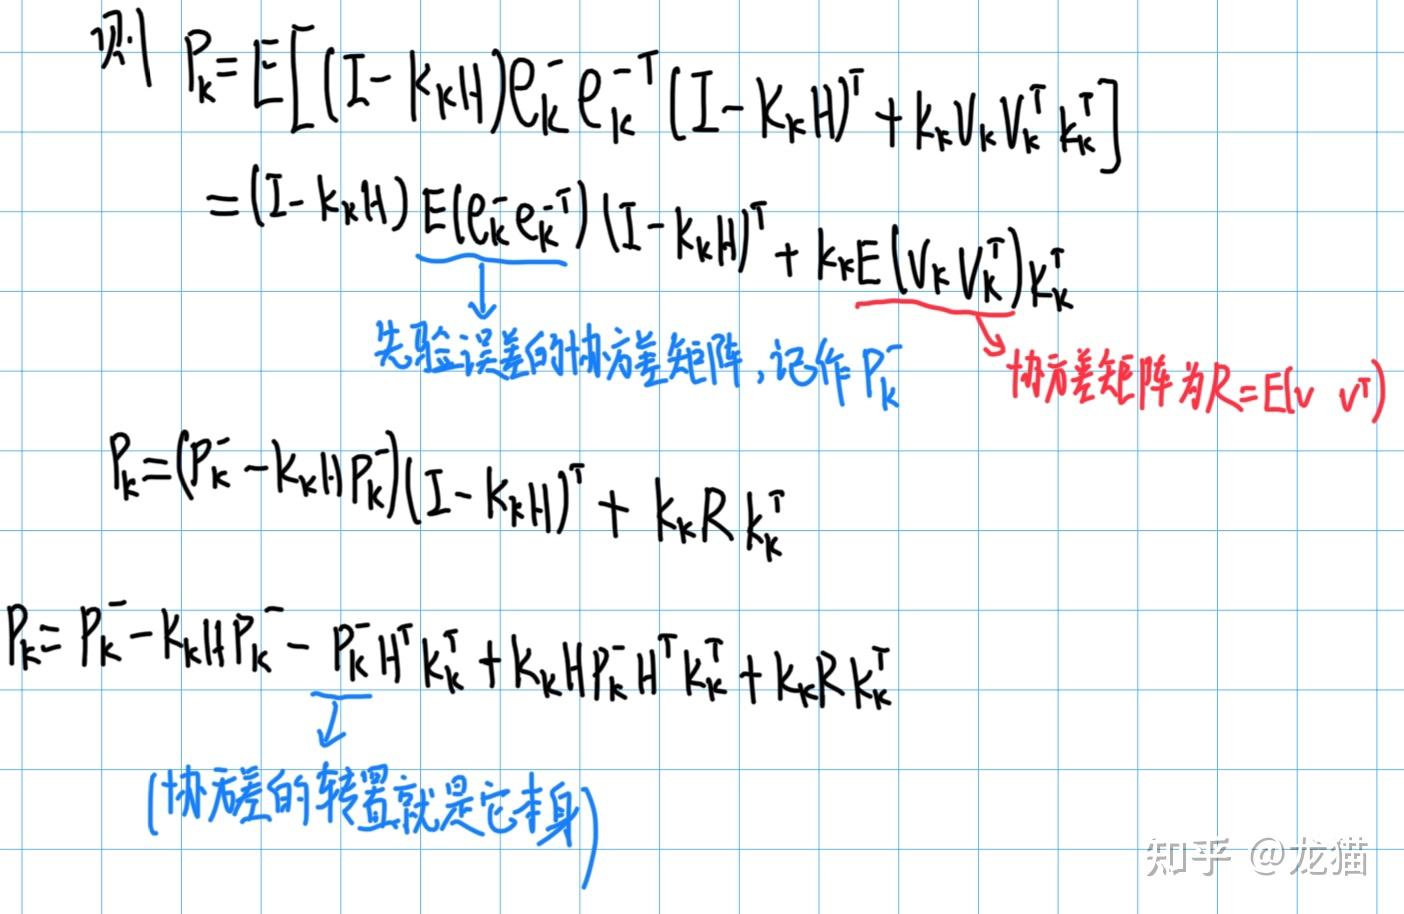 则 P_k = E[(I - K_kH)e_k^- e_k^{-T} (I - K_kH)^T + K_k V_k V_k^T K_k^T]
= (I - K_kH) E(e_k^- e_k^{-T}) (I - K_kH)^T + K_k E(V_k V_k^T) K_k^T
先验误差的协方差矩阵,记作 P_k^-
协方差矩阵为R=E(v v^T)
P_k = (P_k^- - K_kHP_k^-)(I - K_kH)^T + K_k R K_k^T
P_k = P_k^- - K_kHP_k^- - P_k^- H^T K_k^T + K_kHP_k^- H^T K_k^T + K_k R K_k^T
(协方差的转置就是它本身)
知乎 @龙猫